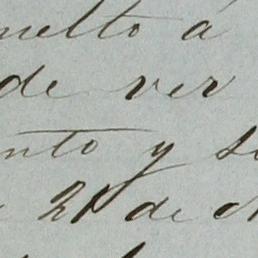 uelto á
de ver
nto y s
21 de